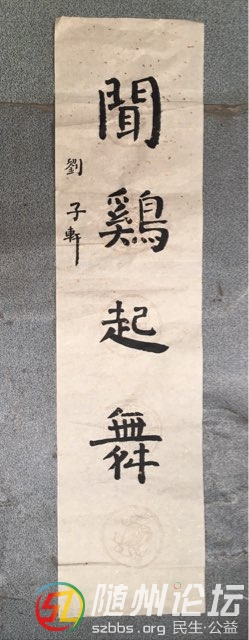 聞鷄起舞
劉子軒
随州论坛
szbbs.org 民生·公益